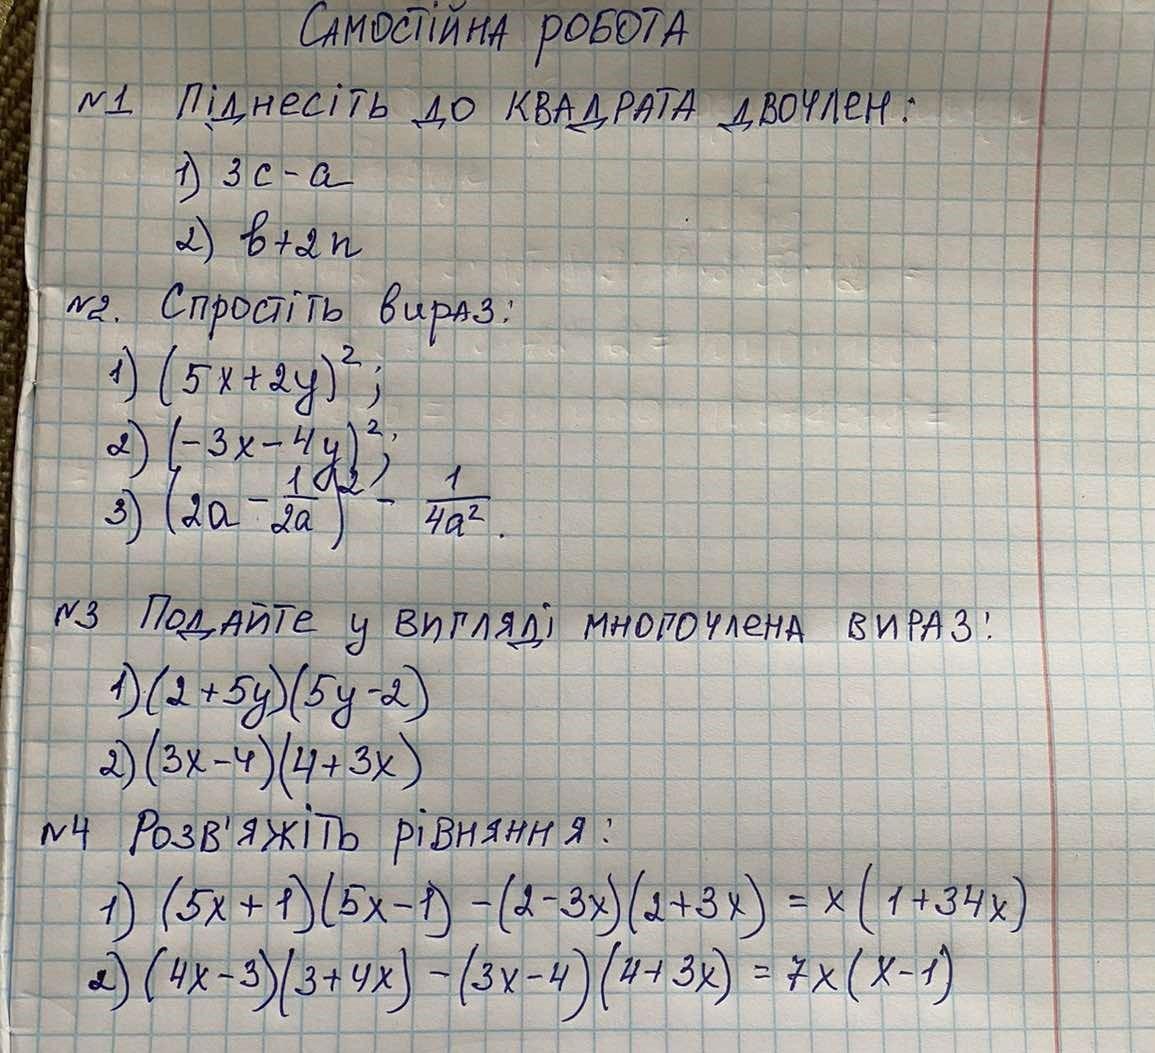 Самостійна робота
№1 Піднесіть до квадрата двочлен:
1) 3c - a
2) b + 2n
№2. Спростіть вираз:
1) (5x + 2y)²;
2) (-3x - 4y)²;
3) (2a - 1/2a)² - 1/4a².
№3 Подайте у вигляді многочлена вираз:
1) (2 + 5y)(5y - 2)
2) (3x - 4)(4 + 3x)
№4 Розв'яжіть рівняння:
1) (5x + 1)(5x - 1) - (2 - 3x)(2 + 3x) = x(1 + 34x)
2) (4x - 3)(3 + 4x) - (3x - 4)(4 + 3x) = 7x(x - 1)